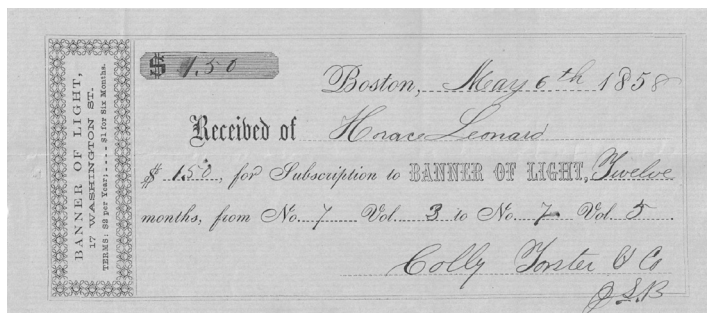 BANNER OF LIGHT,
17 WASHINGTON ST.
TERMS: $2 per Year; .... $1 for Six Months.
$ 1.50
Boston, May 6th 1858
Received of Horace Leonard
$ 1.50, for Subscription to BANNER OF LIGHT, Twelve
months, from No. 7 Vol. 3 to No. 7 Vol. 5.
Colby Forster & Co
JSB